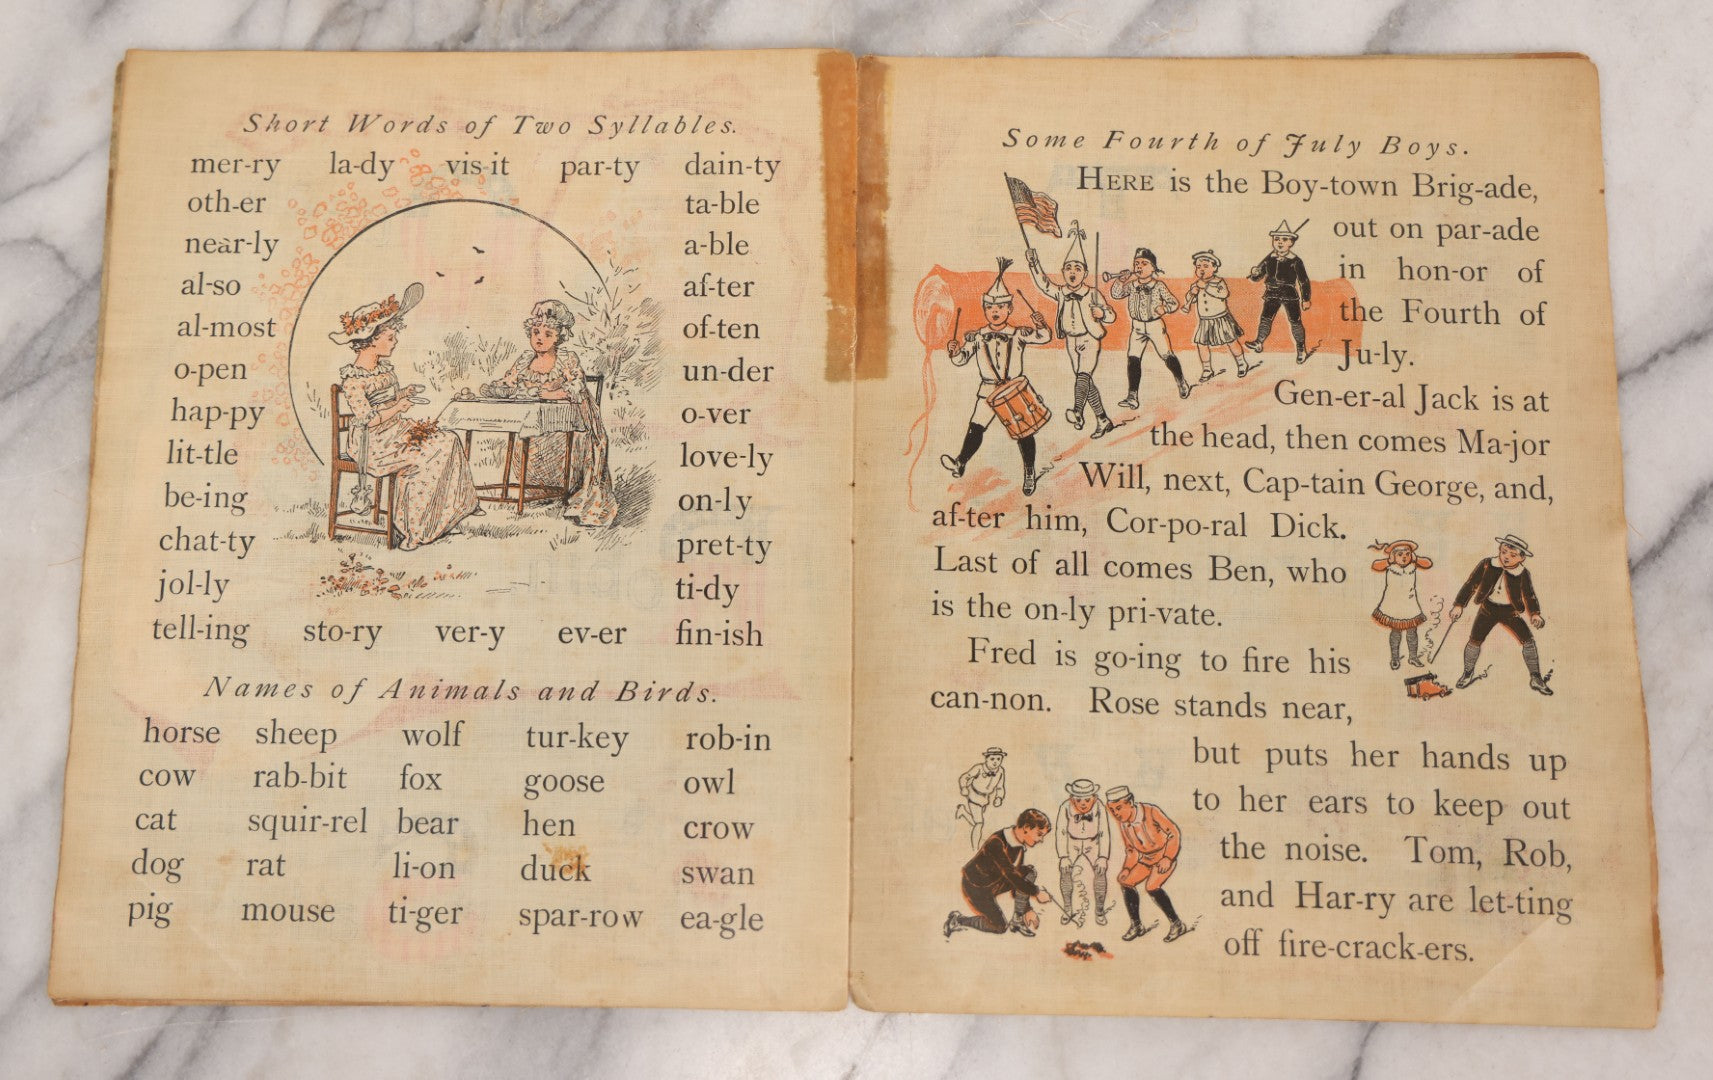 Short Words of Two Syllables.
mer-ry la-dy vis-it par-ty dain-ty
oth-er ta-ble
near-ly a-ble
al-so af-ter
al-most of-ten
o-pen un-der
hap-py o-ver
lit-tle love-ly
be-ing on-ly
chat-ty pret-ty
jol-ly ti-dy
tell-ing sto-ry ver-y ev-er fin-ish
Names of Animals and Birds.
horse sheep wolf tur-key rob-in
cow rab-bit fox goose owl
cat squir-rel bear hen crow
dog rat li-on duck swan
pig mouse ti-ger spar-row ea-gle
Some Fourth of July Boys.
HERE is the Boy-town Brig-ade,
out on par-ade
in hon-or of
the Fourth of
Ju-ly.
Gen-er-al Jack is at
the head, then comes Ma-jor
Will, next, Cap-tain George, and,
af-ter him, Cor-po-ral Dick.
Last of all comes Ben, who
is the on-ly pri-vate.
Fred is go-ing to fire his
can-non. Rose stands near,
but puts her hands up
to her ears to keep out
the noise. Tom, Rob,
and Har-ry are let-ting
off fire-crack-ers.